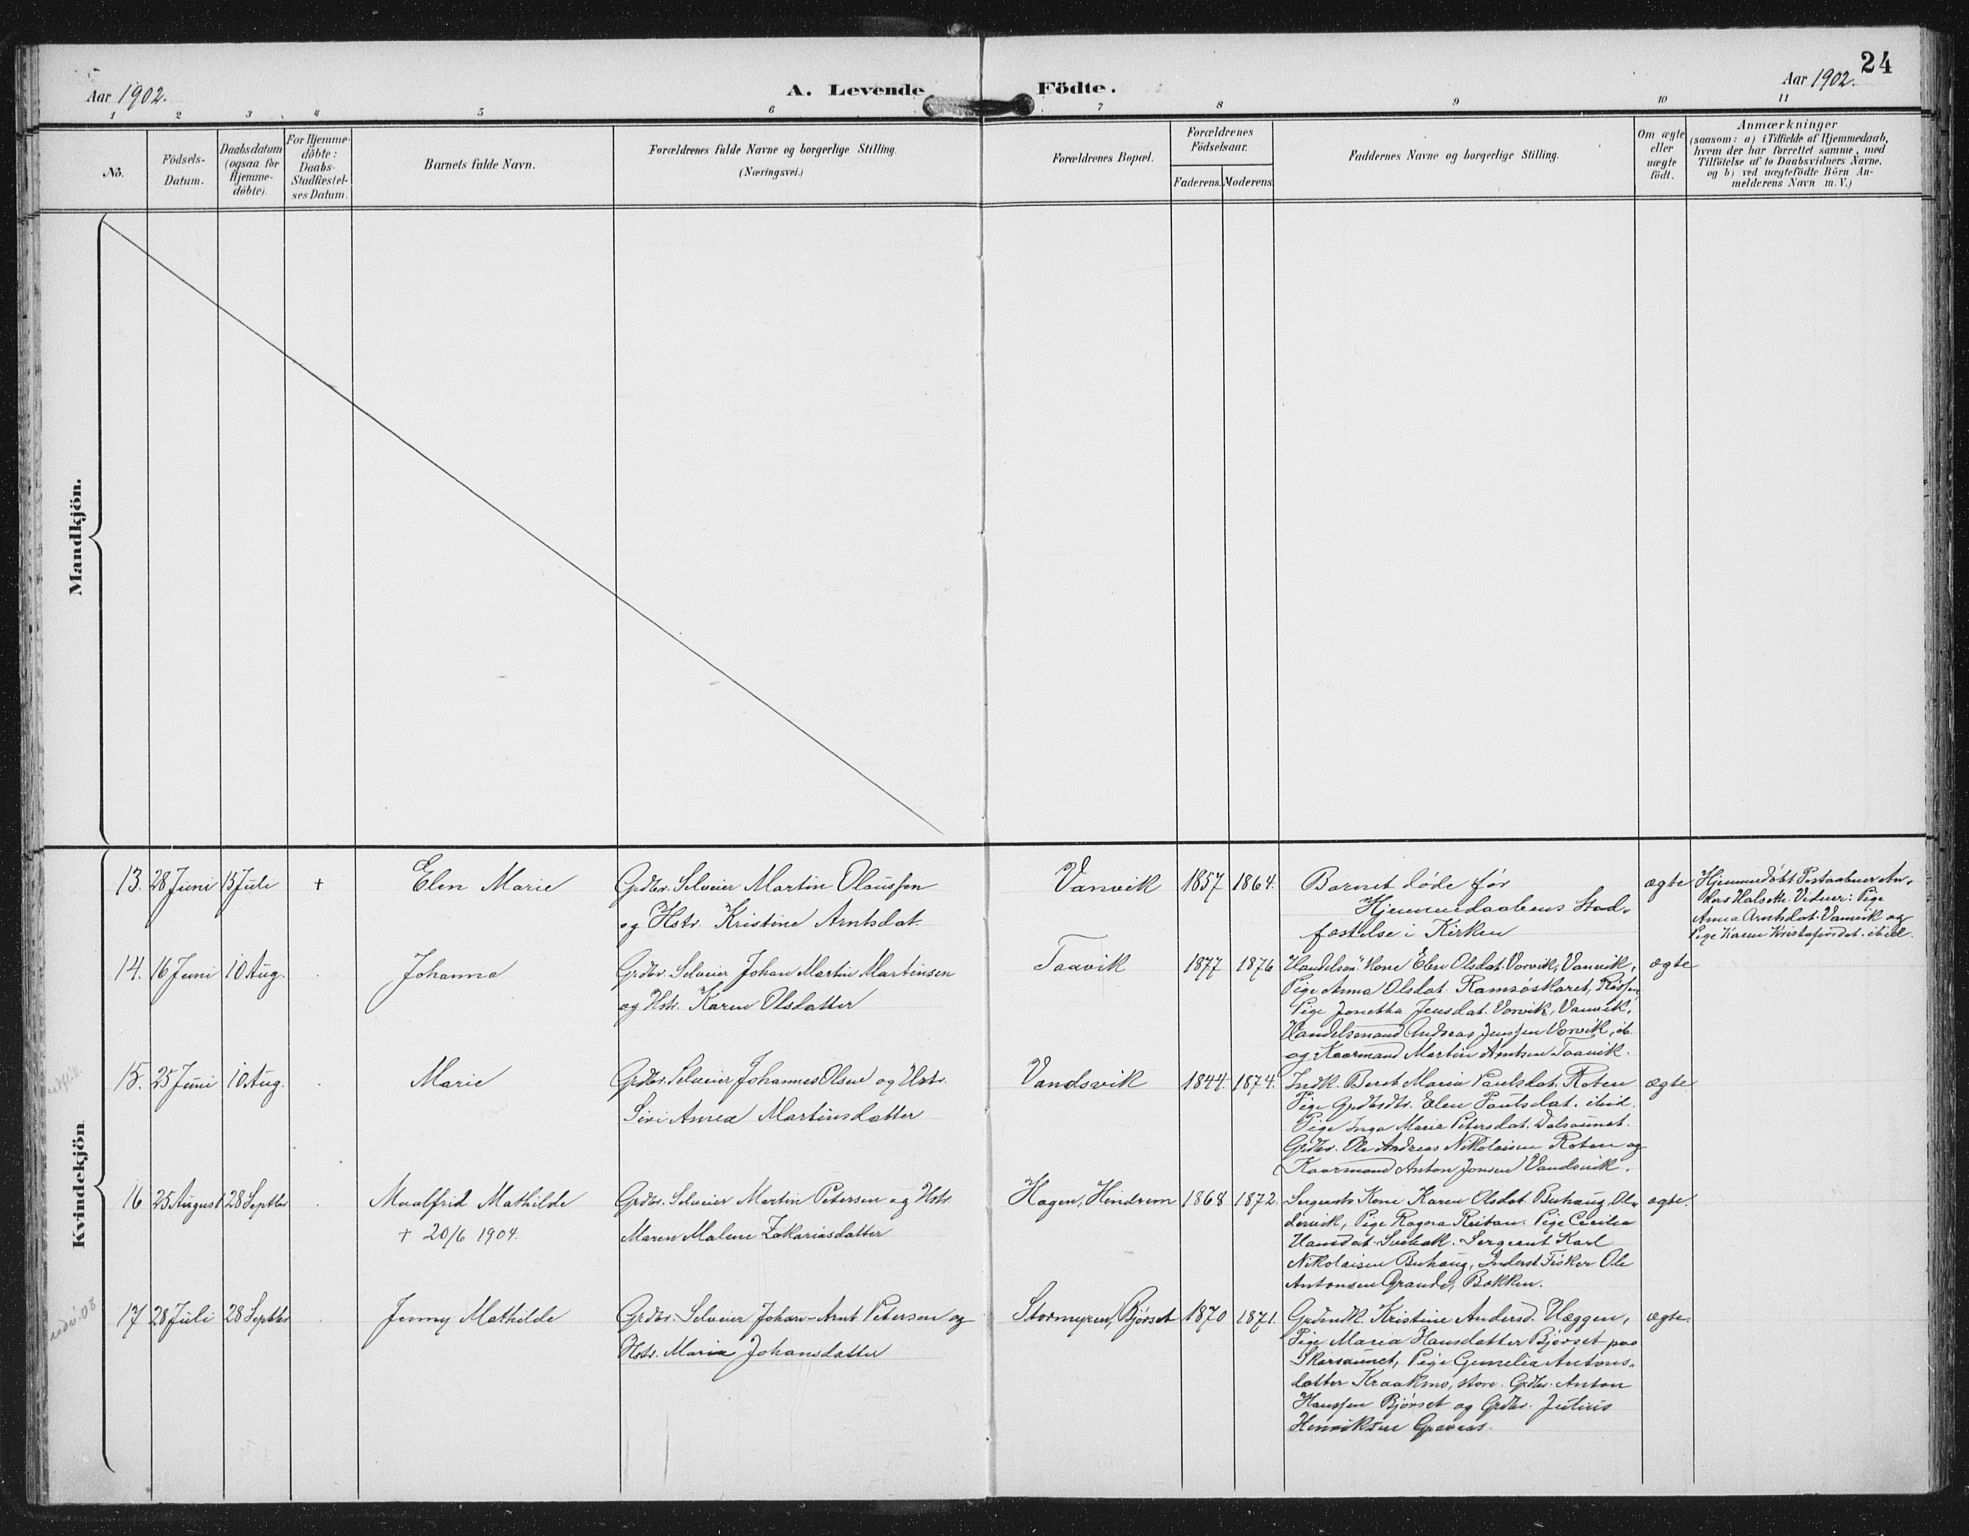 24
Aar 1902.
A. Levende
Födte.
Aar 1902.
1 2 3 4 5 6 7 8 9 10 11
No.
Födsels-
Datum.
Daabsdatum
(ogsaa for
Hjemme-
döbte).
For Hjemme-
döbte:
Daabs-
Stadfæstel-
ses Datum.
Barnets fulde Navn.
Forældrenes fulde Navne og borgerlige Stilling.
(Næringsvei.)
Forældrenes Bopæl.
Forældrenes
Födselsaar.
Faderens. Moderens.
Faddernes Navne og borgerlige Stilling.
Om ægte
eller
uægte
födt.
Anmærkninger
(saasom: a) i Tilfælde af Hjemmedaab,
hvem der har forrettet samme, med
Tilföielse af to Daabsvidners Navne.
og b) ved uægtefödte Börn An-
melderens Navn m. V.)
Mandkjön.
Kvindekjön
13. 28 Juni 15 Juli + Elen Marie
Grdbr. Selveier Martin Olaussen
og Hstr. Kristine Arntsdat.
Vanvik 1857 1864.
Barnet døde før
Hjemmedaabens Stad-
fæstelse i Kirken
ægte
Hjemmedøbt Postaabner An-
ders Halseth. Vidner: Pige
Anna Arntsdat. Vanvik og
Pige Karen Kristofersdat. ibid.
14. 16 Juni 10 Aug. Johanna
Grdbr. Selveier Johan Martin Martinsen
og Hstr. Karen Olsdatter
Taavik 1877 1876
Handelsm. Kone Elen Olsdat. Vorvik, Vanvik,
Pige Anna Olsdat. Ramsøskaret, Rissen,
Pige Jonetha Jensdat. Vorvik, Vanvik,
Handelsmand Andreas Jenssen Vorvik, ib.
og Kaarmand Martin Arntsen Taavik.
ægte
15. 25 Juni 10 Aug. Marie
Grdbr. Selveier Johannes Olsen og Hstr.
Siri Anna Martinsdatter
Vandsvik 1844. 1874.
Indk. Beret Maria Paulsdat. Roten
Pige Grdbrdtr. Elen Paulsdat. ibid.
Pige Inga Maria Petersdat. Dalsaunet.
Grdbr. Ole Andreas Nikolaisen Roten og
Kaarmand Anton Jonsen Vandsvik.
ægte
16 25 August 28 Septbr Maalfrid Mathilde
+ 20/6 1904.
Grdbr. Selveier Martin Petersen og Hstr.
Maren Malene Zakariasdatter
Hagen, Hindrem 1868 1872.
Sergeants Kone Karen Olsdat. Buhaug, Ole
dervik, Pige Ragna Reitan. Pige Cecilia
Hansdat. Svebak. Sergeant Karl
Nikolaisen Buhaug, Inderst Fisker Ole
Antonsen Grande, Bakken.
ægte.
17 28 Juli 28 Septbr Jenny Mathilde
Grdbr. Selveier Johan Arnt Petersen og
Hstr. Maria Johansdatter
Stormyren, Bjørset 1870 1871.
Grdmdk. Kristine Andersd. Hæggen,
Pige Maria Hansdatter Bjørset paa
Skarsaunet, Pige Gunelia Antons-
datter Kraakmo, store. Grdbr. Anton
Hanssen Bjørset og Grdbr. Julius
Henriksen Graveas.
ægte.